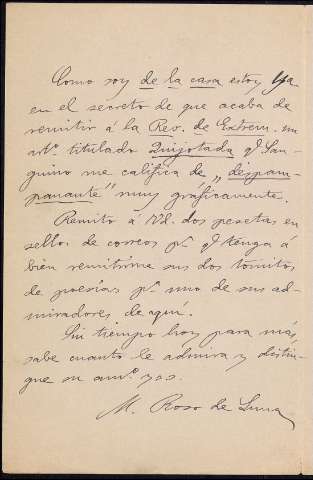 Como soy de la casa estoy ya
en el secreto de que acaba de
remitir á la Rev. de Extrem. un
artº. titulado Quijotada q. San-
guino me califica de „despam-
panante" muy gráficamente.
Remito á Vd. dos pesetas en
sellos de correos pª. q. tenga á
bien remitirme sus dos tomitos
de poesías pª. uno de sus ad-
miradores de aquí.
Sin tiempo hoy para más,
sabe cuanto le admira y distin-
gue su amº. y ss.
M. Roso de Luna